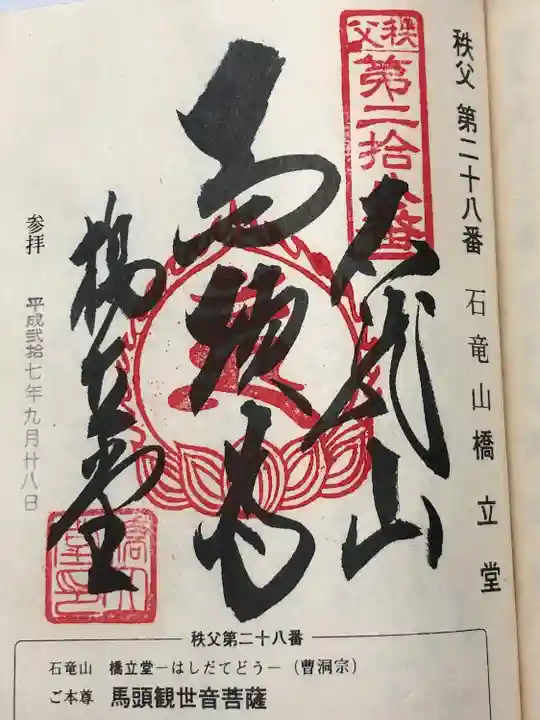 秩父 第二十八番 石竜山橋立堂
秩父
第二拾八番
石竜山
馬頭尊
橋立堂
参拝
平成弐拾七年九月廿八日
秩父第二十八番
石竜山 橋立堂－はしだてどう－(曹洞宗)
ご本尊 馬頭観世音菩薩